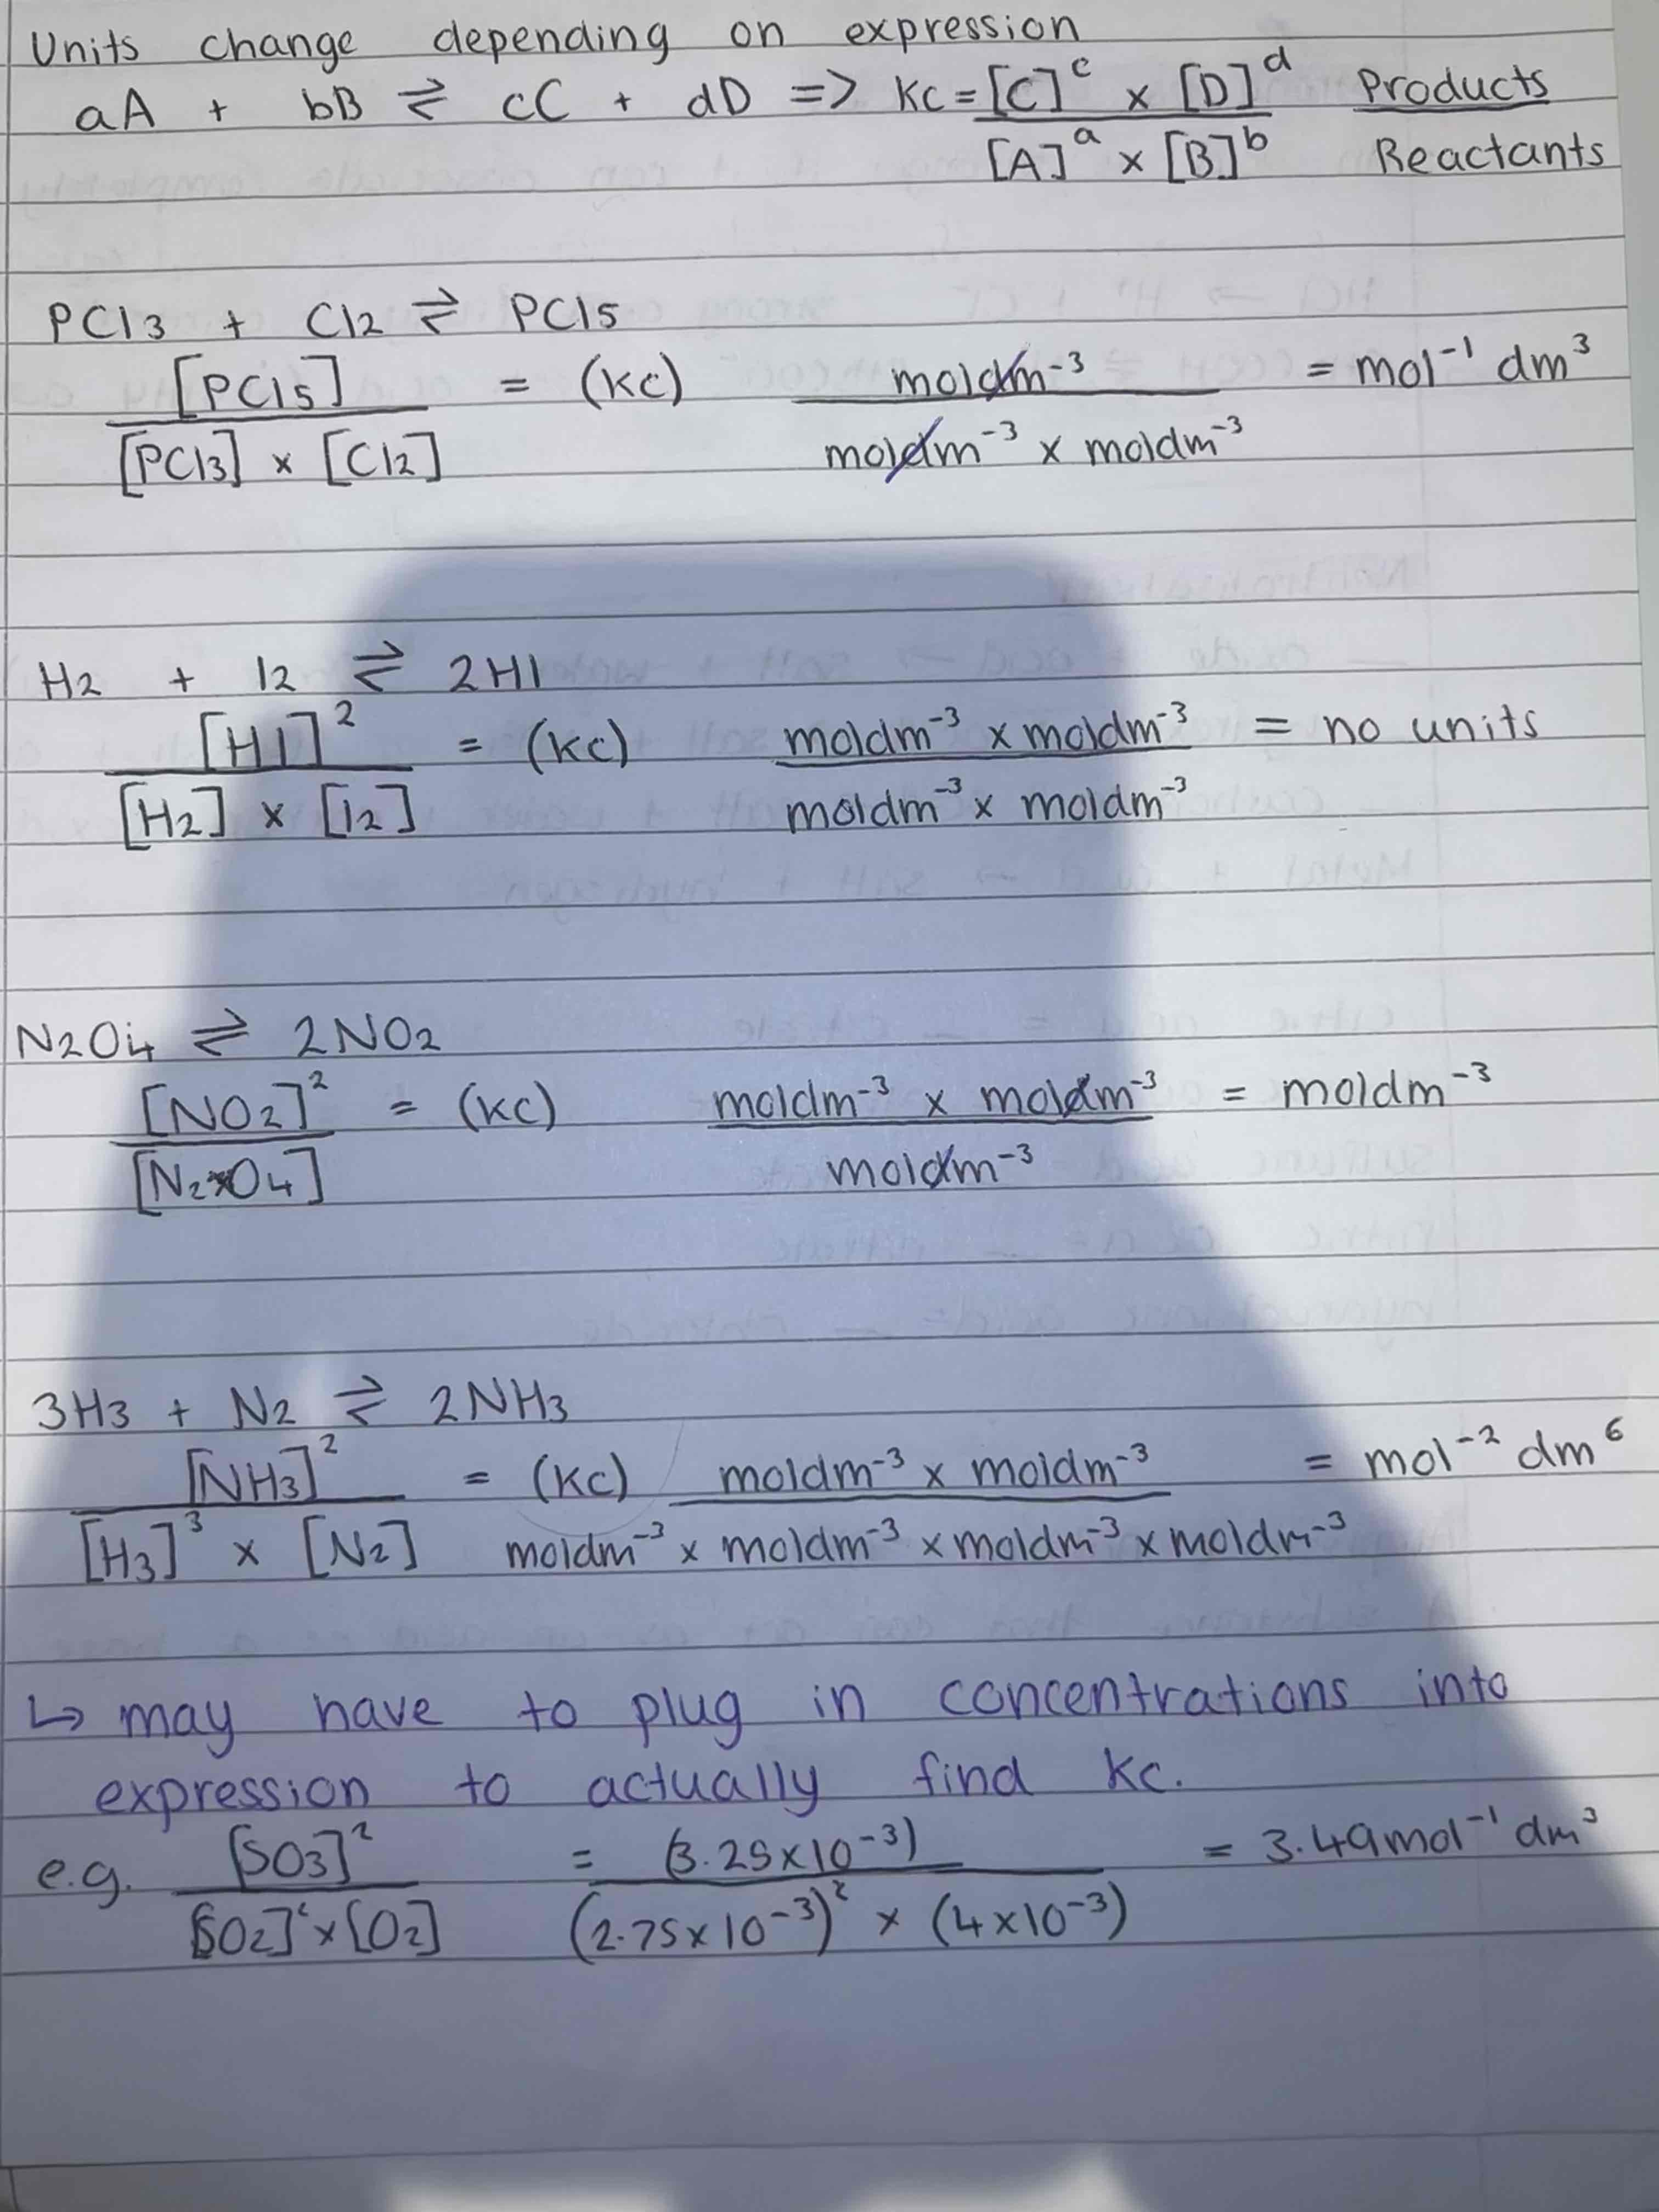 Units change depending on expression
aA + bB ⇌ cC + dD => Kc = [C]^c x [D]^d / [A]^a x [B]^b Products / Reactants
PCl3 + Cl2 ⇌ PCl5
[PCl5] / [PCl3] x [Cl2] = (Kc) moldm^-3 / moldm^-3 x moldm^-3 = mol^-1 dm^3
H2 + I2 ⇌ 2HI
[HI]^2 / [H2] x [I2] = (Kc) moldm^-3 x moldm^-3 / moldm^-3 x moldm^-3 = no units
N2O4 ⇌ 2NO2
[NO2]^2 / [N2O4] = (Kc) moldm^-3 x moldm^-3 / moldm^-3 = moldm^-3
3H3 + N2 ⇌ 2NH3
[NH3]^2 / [H3]^3 x [N2] = (Kc) moldm^-3 x moldm^-3 / moldm^-3 x moldm^-3 x moldm^-3 x moldm^-3 = mol^-2 dm^6
↳ may have to plug in concentrations into
expression to actually find Kc.
e.g. [SO3]^2 / [SO2]^2 x [O2] = (3.25x10^-3) / (2.75x10^-3)^2 x (4x10^-3) = 3.49mol^-1 dm^3